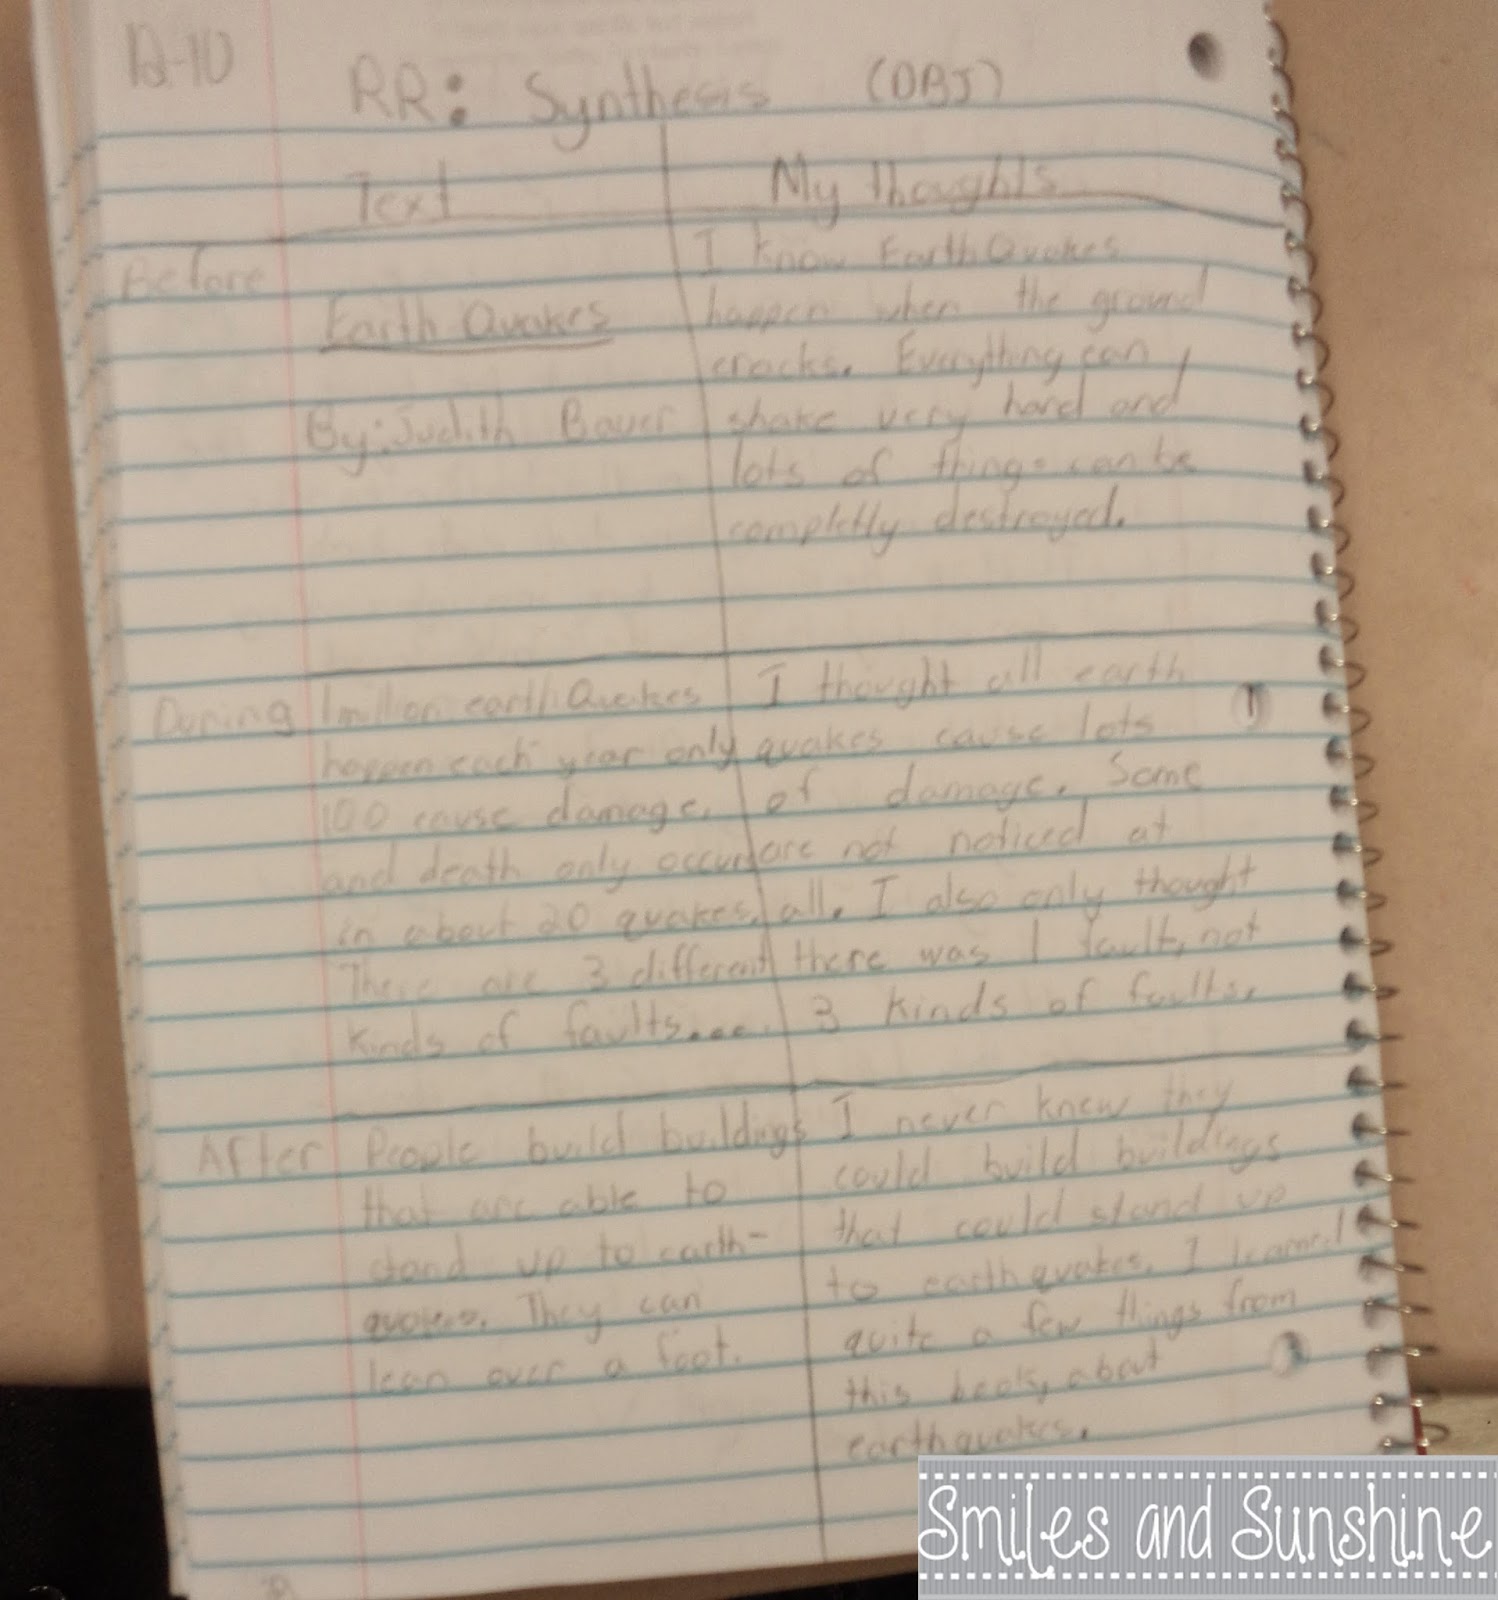 12-10
RR: Synthesis (DBJ)
Text
My thoughts
Before
Earth Quakes
By: Judith Bauer
I know Earth Quakes
happen when the ground
cracks. Everything can
shake very hard and
lots of things can be
completly destroyed.
During
1 million earth Quakes
happen each year only
100 cause damage.
and death only occur
in about 20 quakes.
There are 3 different
kinds of faults....
I thought all earth
quakes cause lots
of damage. Some
are not noticed at
all. I also only thought
there was 1 fault, not
3 kinds of faults.
After
People build buildings
that are able to
stand up to earth-
quakes. They can
lean over a foot.
I never knew they
could build buildings
that could stand up
to earthquakes. I learned
quite a few things from
this book, about
earthquakes.
Smiles and Sunshine